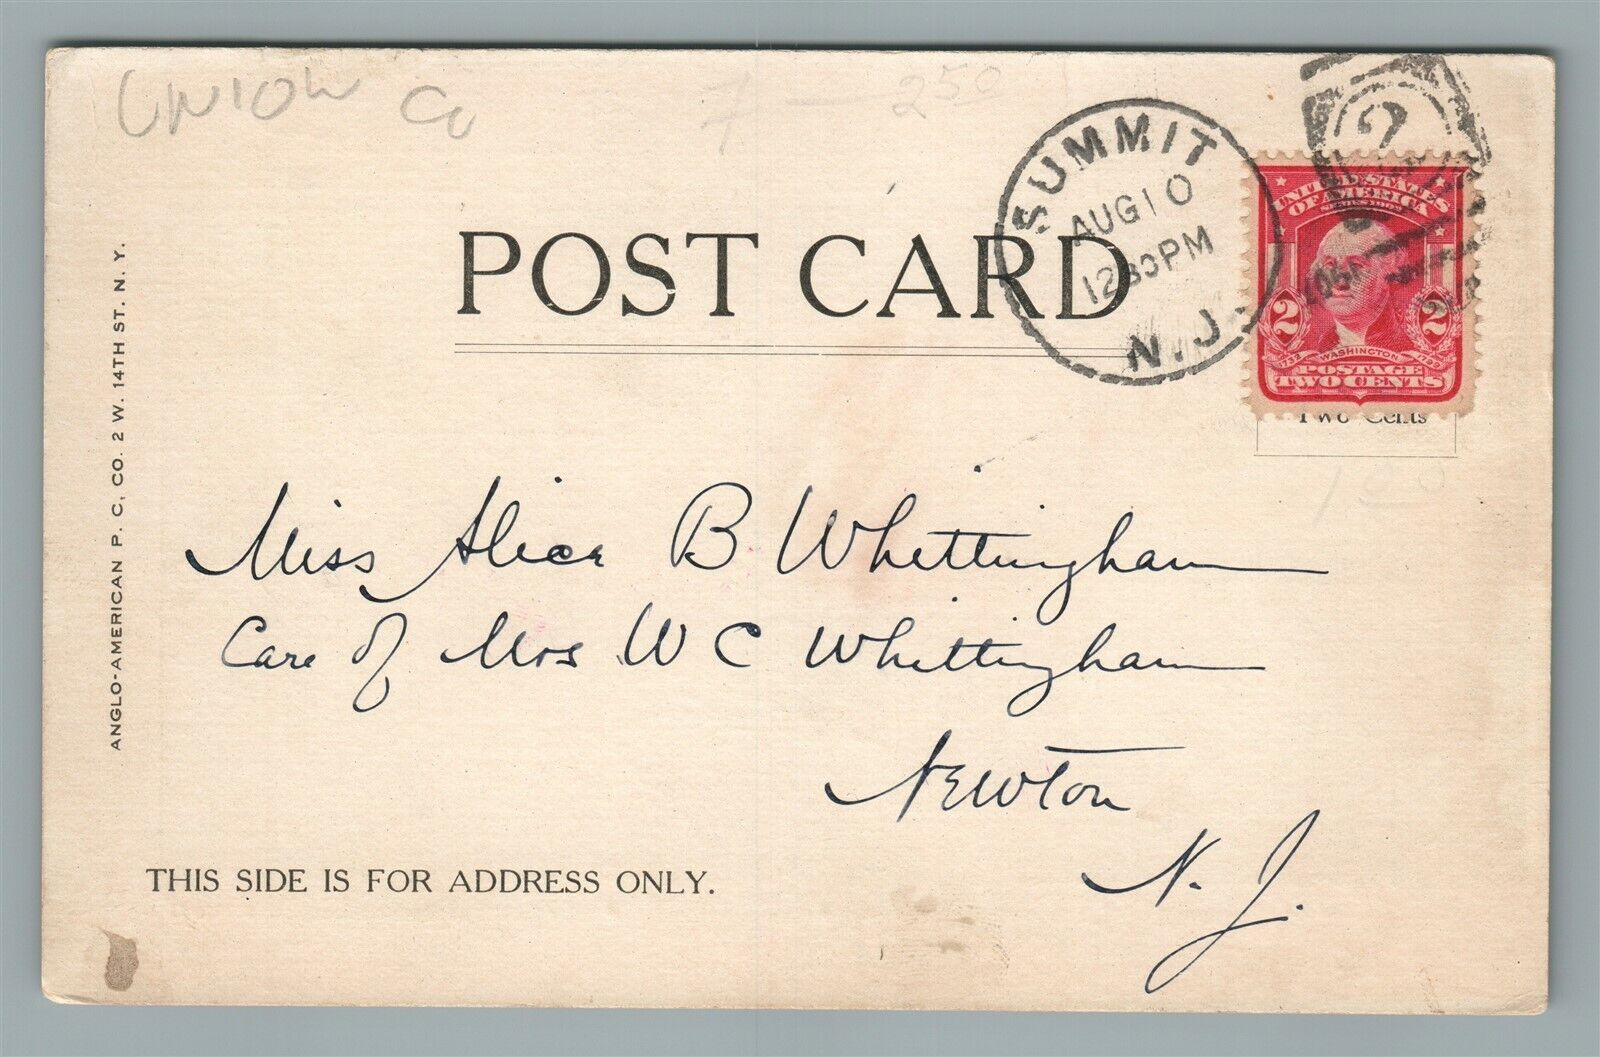 UNION Co
7 — 250
SUMMIT
AUG 10
12 30 PM
N.J.
2
UNITED STATES
OF AMERICA
SERIES 1902
2 2
1732 WASHINGTON 1799
POSTAGE
TWO CENTS
POST CARD
Two Cents
ANGLO-AMERICAN P. C. CO. 2 W. 14TH ST. N. Y.
Miss Alice B Whittingham
Care of Mrs W C Whittingham
Newton
N. J.
THIS SIDE IS FOR ADDRESS ONLY.